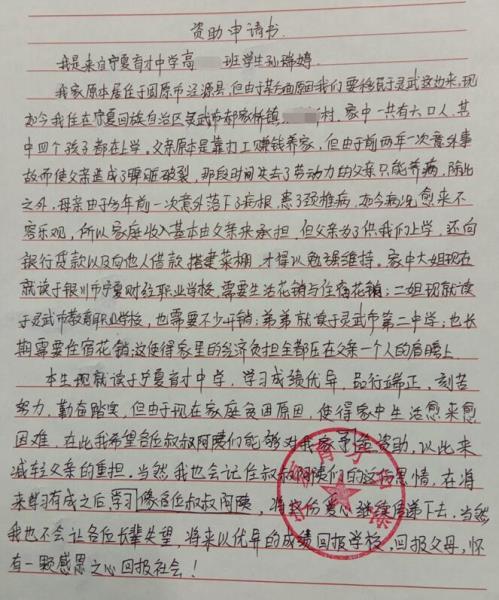 资助申请书
我是来自宁夏育才中学高 班学生孔瑞婷
我家原本居住于固原市泾源县,但由于某方面原因我们要移民于灵武这边来,现
如今我住在宁夏回族自治区灵武市郝家桥镇 村。家中一共有六口人,其
中四个孩子都在上学。父亲原本是靠力工赚钱养家,但由于前两年一次意外事
故而使父亲造成了脾脏破裂,那段时间失去了劳动力的父亲只能养病,除此
之外,母亲由于多年前一次意外落下了病根,患了颈椎病,如今病况愈来不
容乐观,所以家庭收入基本由父亲来承担,但父亲为了供我们上学,还向
银行贷款以及向他人借款 搭建菜棚,才得以勉强维持。家中大姐现在
就读于银川市宁夏财经职业学校,需要生活花销与住宿花销;二姐现就读
于灵武市教育职业学校,也需要不少开销;弟弟就读于灵武市第二中学;也长
期需要住宿花销;这使得家里的经济负担全都压在父亲一个人的肩膀上。
本生现就读于宁夏育才中学,学习成绩优异,品行端正,刻苦
努力,勤奋踏实,但由于现在家庭贫困原因,使得家中生活愈来愈
困难,在此我希望各位叔叔阿姨们能够对我家予些资助,以此来
减轻父亲的重担,当然我也会记住叔叔阿姨们的这份恩情,在将
来学有成之后,学习像各位叔叔阿姨,将这份爱心继续传递下去,当然
我也不会让各位长辈失望,将来以优异的成绩回报学校,回报父母,怀
有一颗感恩之心回报社会!